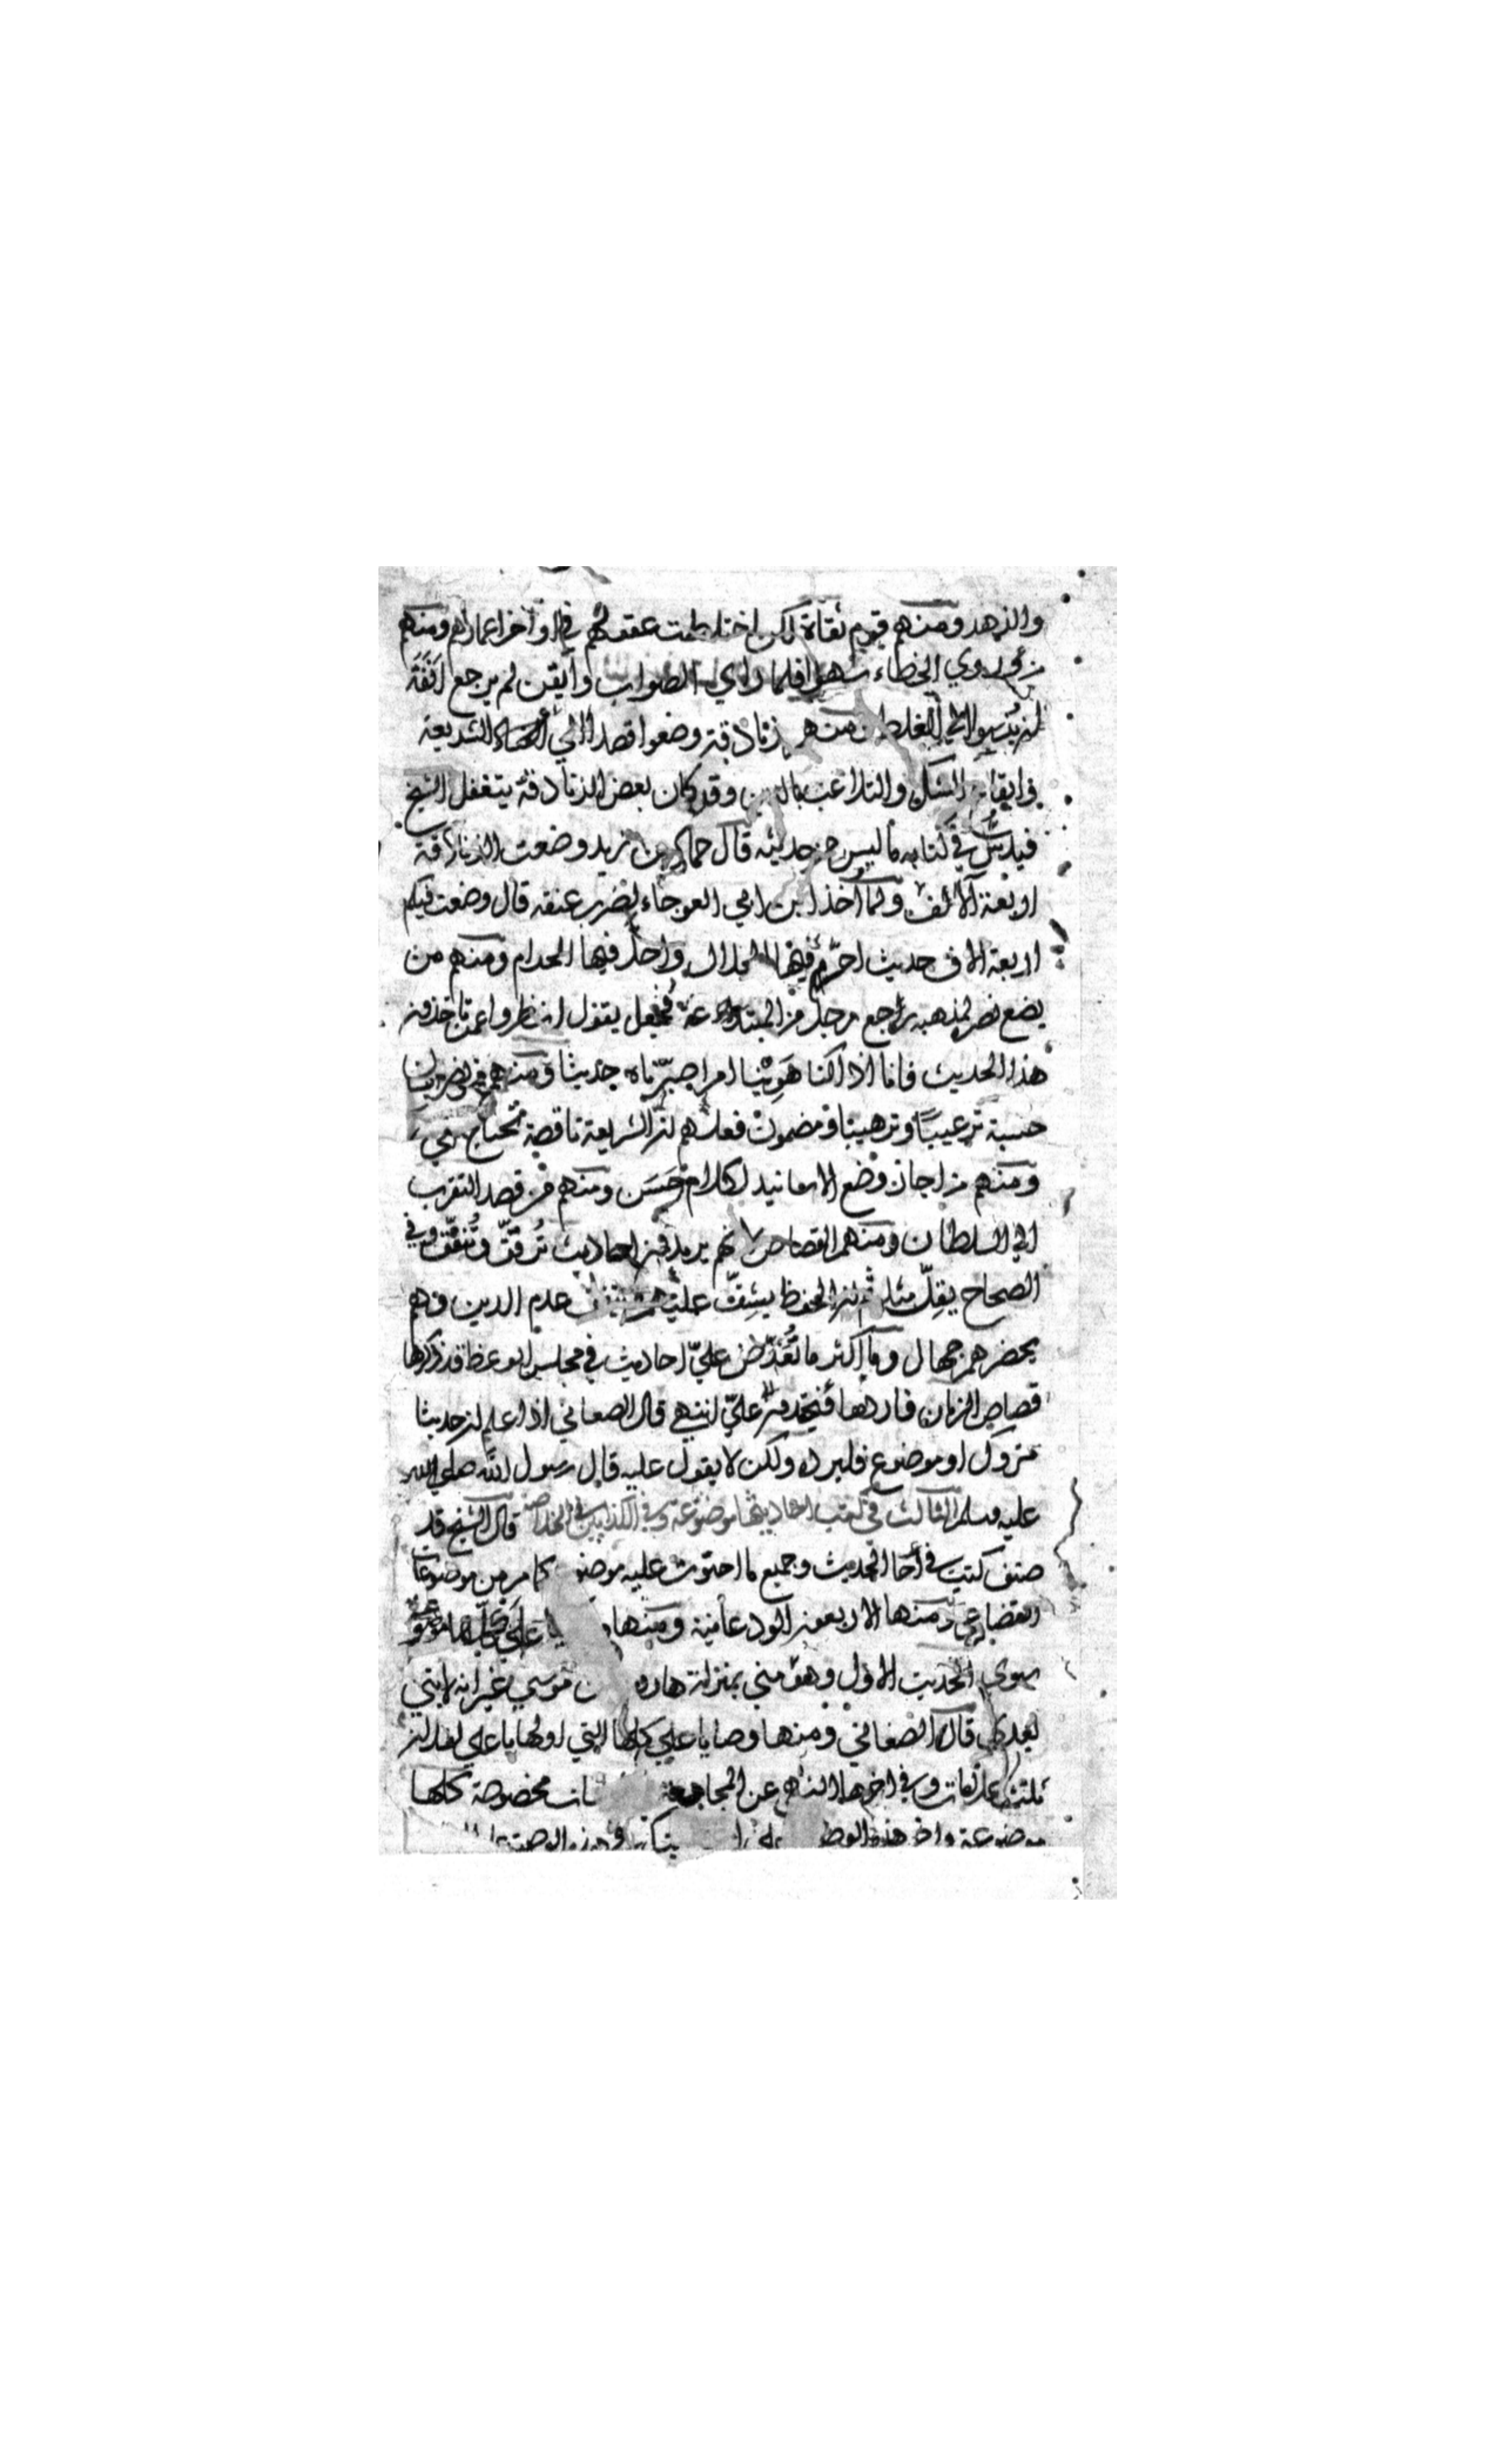 والزهد ومنهم قوم ثقاة لكن اختلطت عقولهم في اواخر اعمارهم ومنهم
من روي الخطاء سهوا فلما راي الصواب وايقن لم يرجع انفة
لن ينسبوا الي الغلط ومنهم زنادقة وضعوا قصدا الي افساد الشريعة
وايقاع الشك والتلاعب بالدين وقد كان بعض الزنادقة يتغفل الشيخ
فيدس في كتابه ما ليس من حديثه قال حماد بن زيد وضعت الزنادقة
اربعة آلاف ولما اخذ ابن ابي العوجاء لضرب عنقه قال وضعت فيكم
اربعة الاف حديث احرم فيها الحلال واحل فيها الحرام ومنهم من
يضع نصر لمذهبه رجع رجل من المبتدعة فجعل يقول انظروا عمن تاخذون
هذا الحديث فانا اذا كنا هوينا امرا صيرناه حديثا ومنهم من
حسبة ترغيبا وترهيبا ومضمون فعلهم لن الشريعة ناقصة تحتاج
ومنهم من اجاز وضع الاسانيد لكلام حسن ومنهم من قصد التقرب
الي السلطان ومنهم القصاص لانهم يريدون احاديث ترقق وتنفق وفي
الصحاح يقل مثله ثم لن الحفظ يشق عليهم عدم الدين وهم
يحضرهم جهال وما اكثر ما تعرض علي احاديث في مجلس الوعظ قد ذكرها
قصاص الزمان فاردها فيحقدون علي انتهي قال الصغاني اذا علم لن حديثا
متروك او موضوع فليرده ولكن لا يقول عليه قال رسول الله صلي الله
عليه وسلم الثالث في كتب احاديثها موضوعة وفي الكذابين في الخلاصة قال الشيخ قد
صنف كتب في الحديث وجميع ما احتوت عليه موضوع كما مر من موضوعات
القضاعي ومنها الاربعون الودعانية ومنها علي كلها موضوعة
سوي الحديث الاول وهو مني بمنزلة هارون من موسي غير انه لا نبي
بعدي قال الصغاني ومنها وصايا علي كلها التي اولها يا علي لفلان
ثلث علامات وفي اخرها النهي عن المجامعة مخصوصة كلها
موضوعة واخر هذه